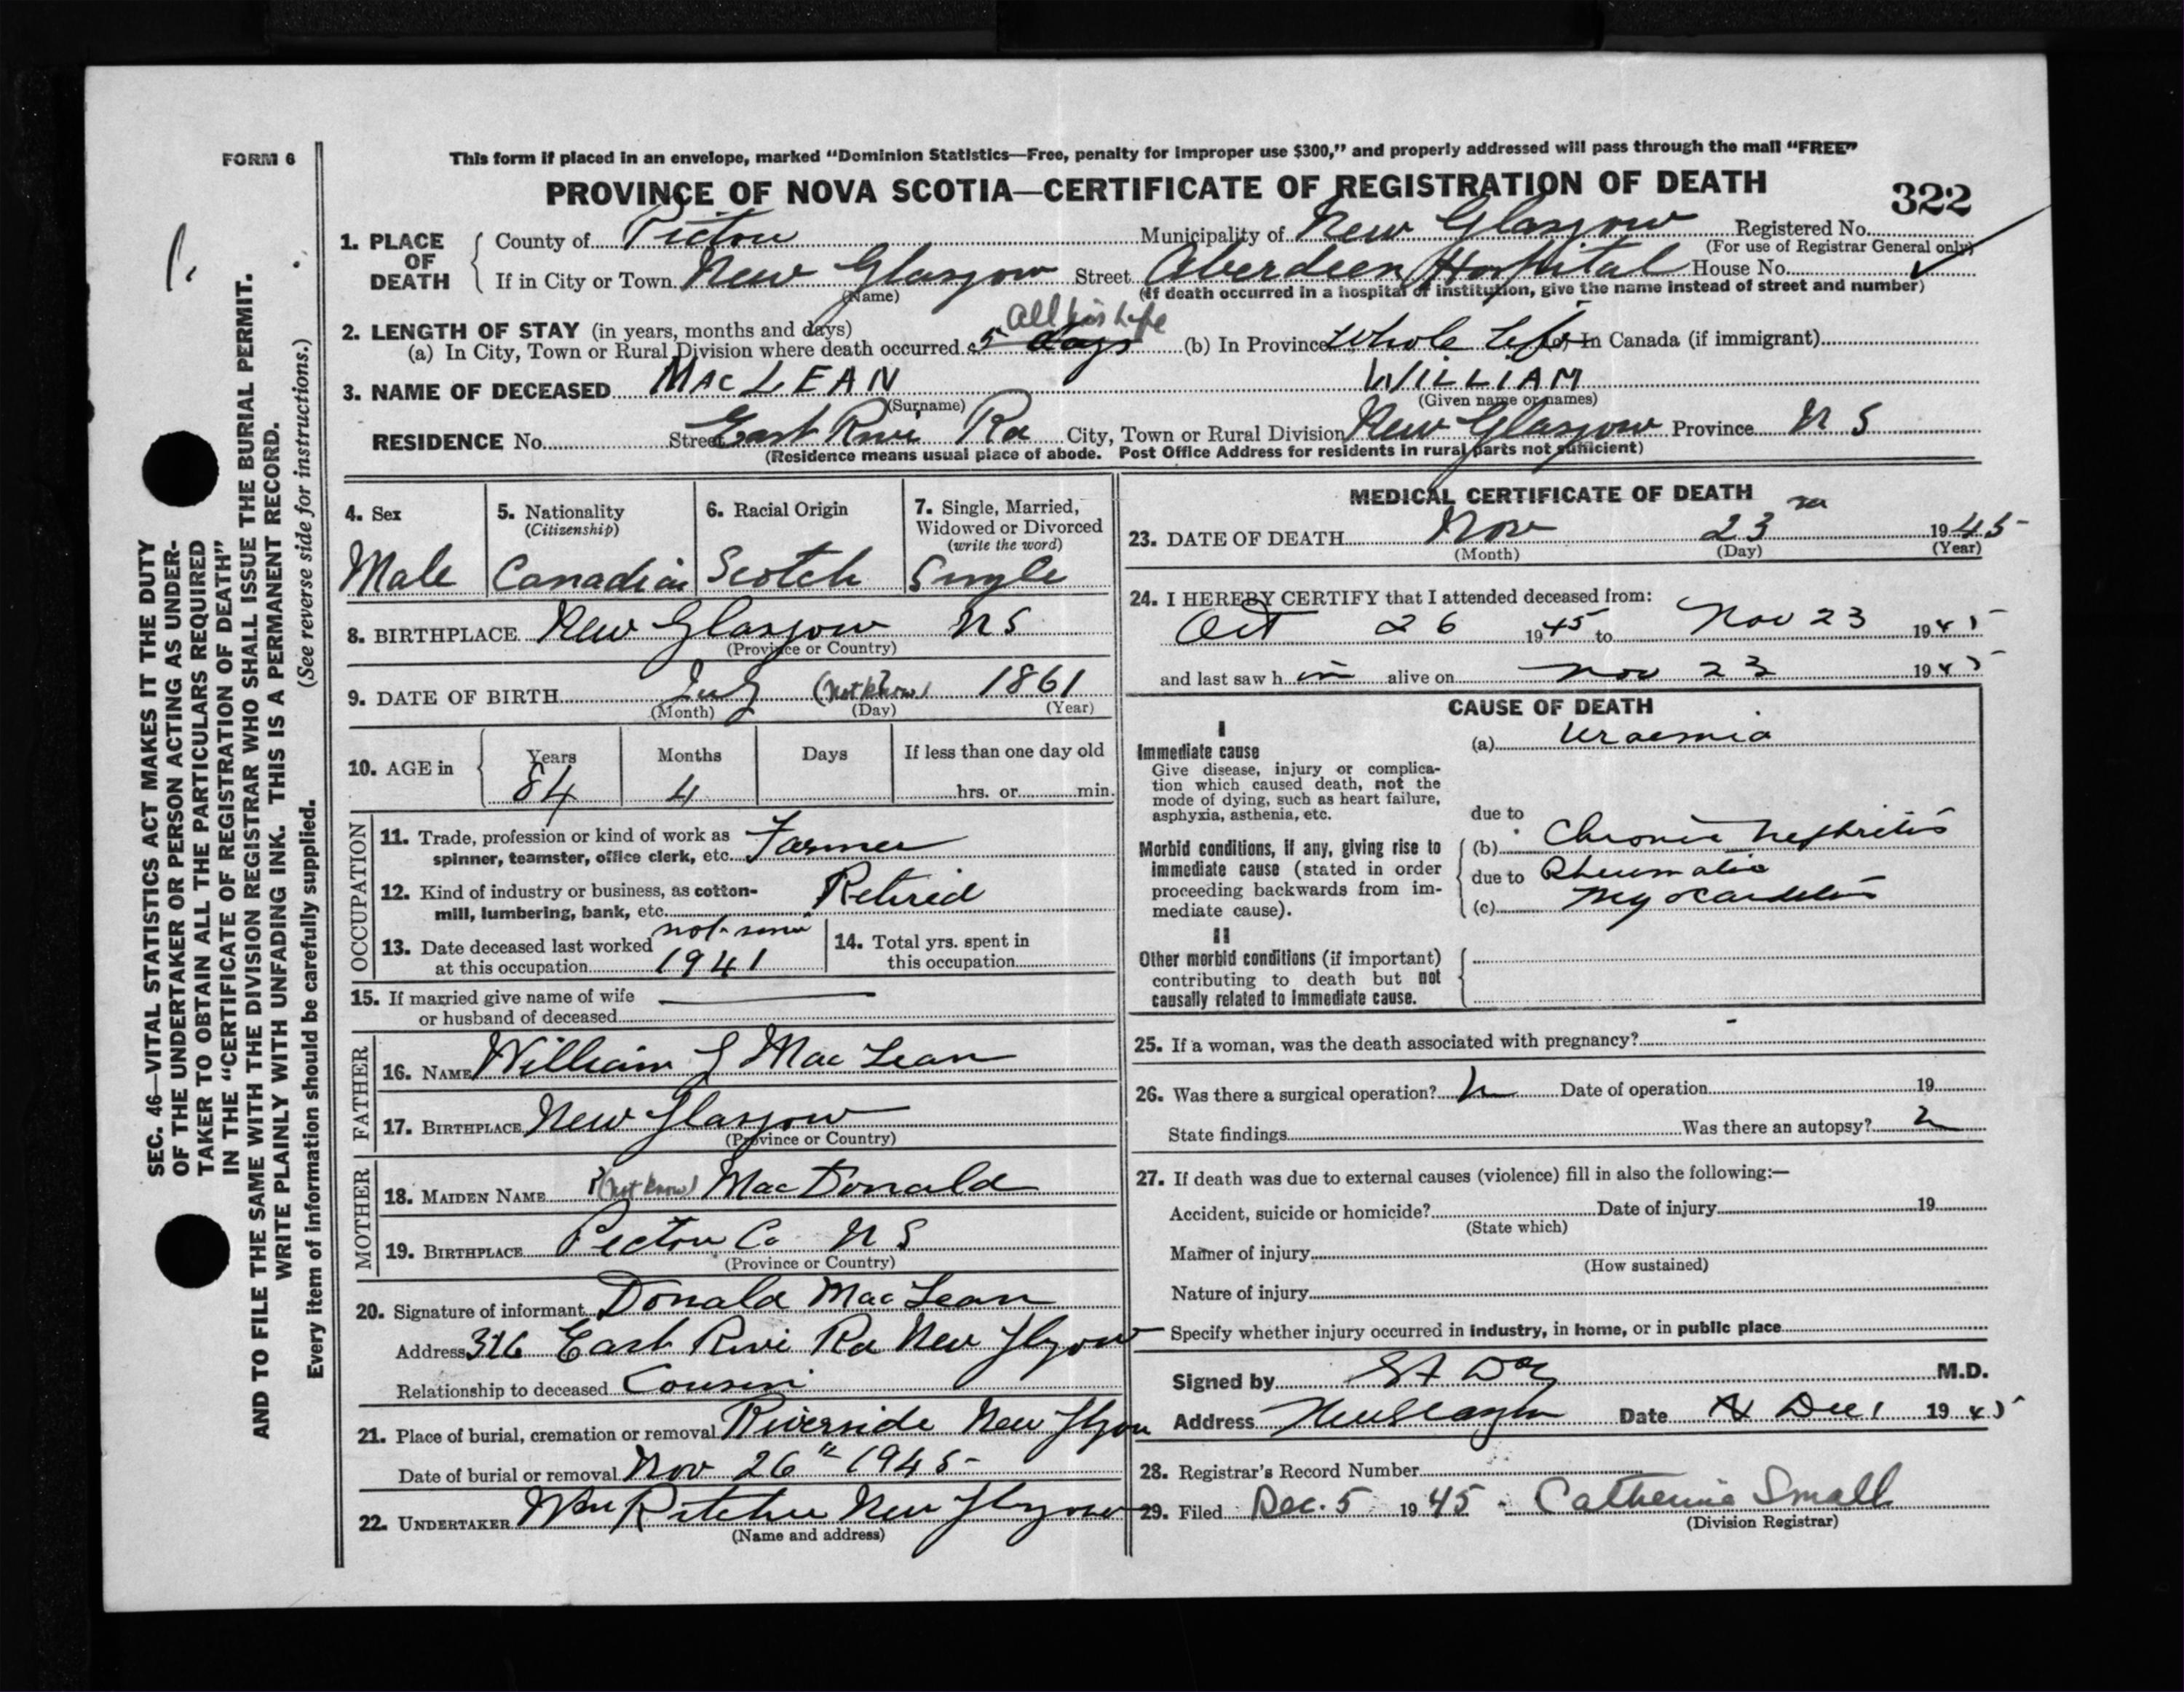 FORM 6
This form if placed in an envelope, marked "Dominion Statistics—Free, penalty for improper use $300," and properly addressed will pass through the mail "FREE"
PROVINCE OF NOVA SCOTIA—CERTIFICATE OF REGISTRATION OF DEATH
322
1. PLACE OF DEATH
County of Pictou Municipality of New Glasgow Registered No.
(For use of Registrar General only)
If in City or Town New Glasgow Street Aberdeen Hospital House No.
(Name) (If death occurred in a hospital or institution, give the name instead of street and number)
2. LENGTH OF STAY (in years, months and days) All his life
(a) In City, Town or Rural Division where death occurred 5 days (b) In Province Whole Life In Canada (if immigrant)
3. NAME OF DECEASED MACLEAN WILLIAM
(Surname) (Given name or names)
RESIDENCE No. Street East River Rd City, Town or Rural Division New Glasgow Province N S
(Residence means usual place of abode. Post Office Address for residents in rural parts not sufficient)
4. Sex
Male
5. Nationality
(Citizenship)
Canadian
6. Racial Origin
Scotch
7. Single, Married,
Widowed or Divorced
(write the word)
Single
8. BIRTHPLACE New Glasgow N S
(Province or Country)
9. DATE OF BIRTH July (not know) 1861
(Month) (Day) (Year)
10. AGE in Years Months Days If less than one day old
84 4 hrs. or min.
OCCUPATION
11. Trade, profession or kind of work as
spinner, teamster, office clerk, etc. Farmer
12. Kind of industry or business, as cotton-
mill, lumbering, bank, etc. Retired
13. Date deceased last worked not
at this occupation 1941
14. Total yrs. spent in
this occupation
15. If married give name of wife
or husband of deceased
FATHER
16. NAME William J MacLean
17. BIRTHPLACE New Glasgow
(Province or Country)
MOTHER
18. MAIDEN NAME ? (not know) MacDonald
19. BIRTHPLACE Pictou Co N S
(Province or Country)
20. Signature of informant Donald MacLean
Address East River Rd New Glasgow
Relationship to deceased Cousin
21. Place of burial, cremation or removal Riverside New Glasgow
Date of burial or removal Nov 26" 1945
22. UNDERTAKER Wm Ritchie New Glasgow
(Name and address)
MEDICAL CERTIFICATE OF DEATH
23. DATE OF DEATH Nov 23rd 1945
(Month) (Day) (Year)
24. I HEREBY CERTIFY that I attended deceased from:
Oct 26 1945 to Nov 23 1945
and last saw him alive on Nov 23 1945
CAUSE OF DEATH
I
Immediate cause (a) Uraemia
Give disease, injury or complica-
tion which caused death, not the
mode of dying, such as heart failure,
asphyxia, asthenia, etc. due to
Morbid conditions, if any, giving rise to (b) Chronic Nephritis
immediate cause (stated in order due to Rheumatic
proceeding backwards from im-
mediate cause). (c) Myocarditis
II
Other morbid conditions (if important)
contributing to death but not
causally related to immediate cause.
25. If a woman, was the death associated with pregnancy? -
26. Was there a surgical operation? Date of operation 19
State findings Was there an autopsy?
27. If death was due to external causes (violence) fill in also the following:—
Accident, suicide or homicide? Date of injury 19
(State which)
Manner of injury
(How sustained)
Nature of injury
Specify whether injury occurred in industry, in home, or in public place
Signed by M.D.
Address New Glasgow Date Dec 1 1945
28. Registrar's Record Number
29. Filed Dec. 5 1945 - Catherine Small
(Division Registrar)
SEC. 46—VITAL STATISTICS ACT MAKES IT THE DUTY
OF THE UNDERTAKER OR PERSON ACTING AS UNDER-
TAKER TO OBTAIN ALL THE PARTICULARS REQUIRED
IN THE "CERTIFICATE OF REGISTRATION OF DEATH"
AND TO FILE THE SAME WITH THE DIVISION REGISTRAR WHO SHALL ISSUE THE BURIAL PERMIT.
WRITE PLAINLY WITH UNFADING INK. THIS IS A PERMANENT RECORD.
Every item of information should be carefully supplied. (See reverse side for instructions.)